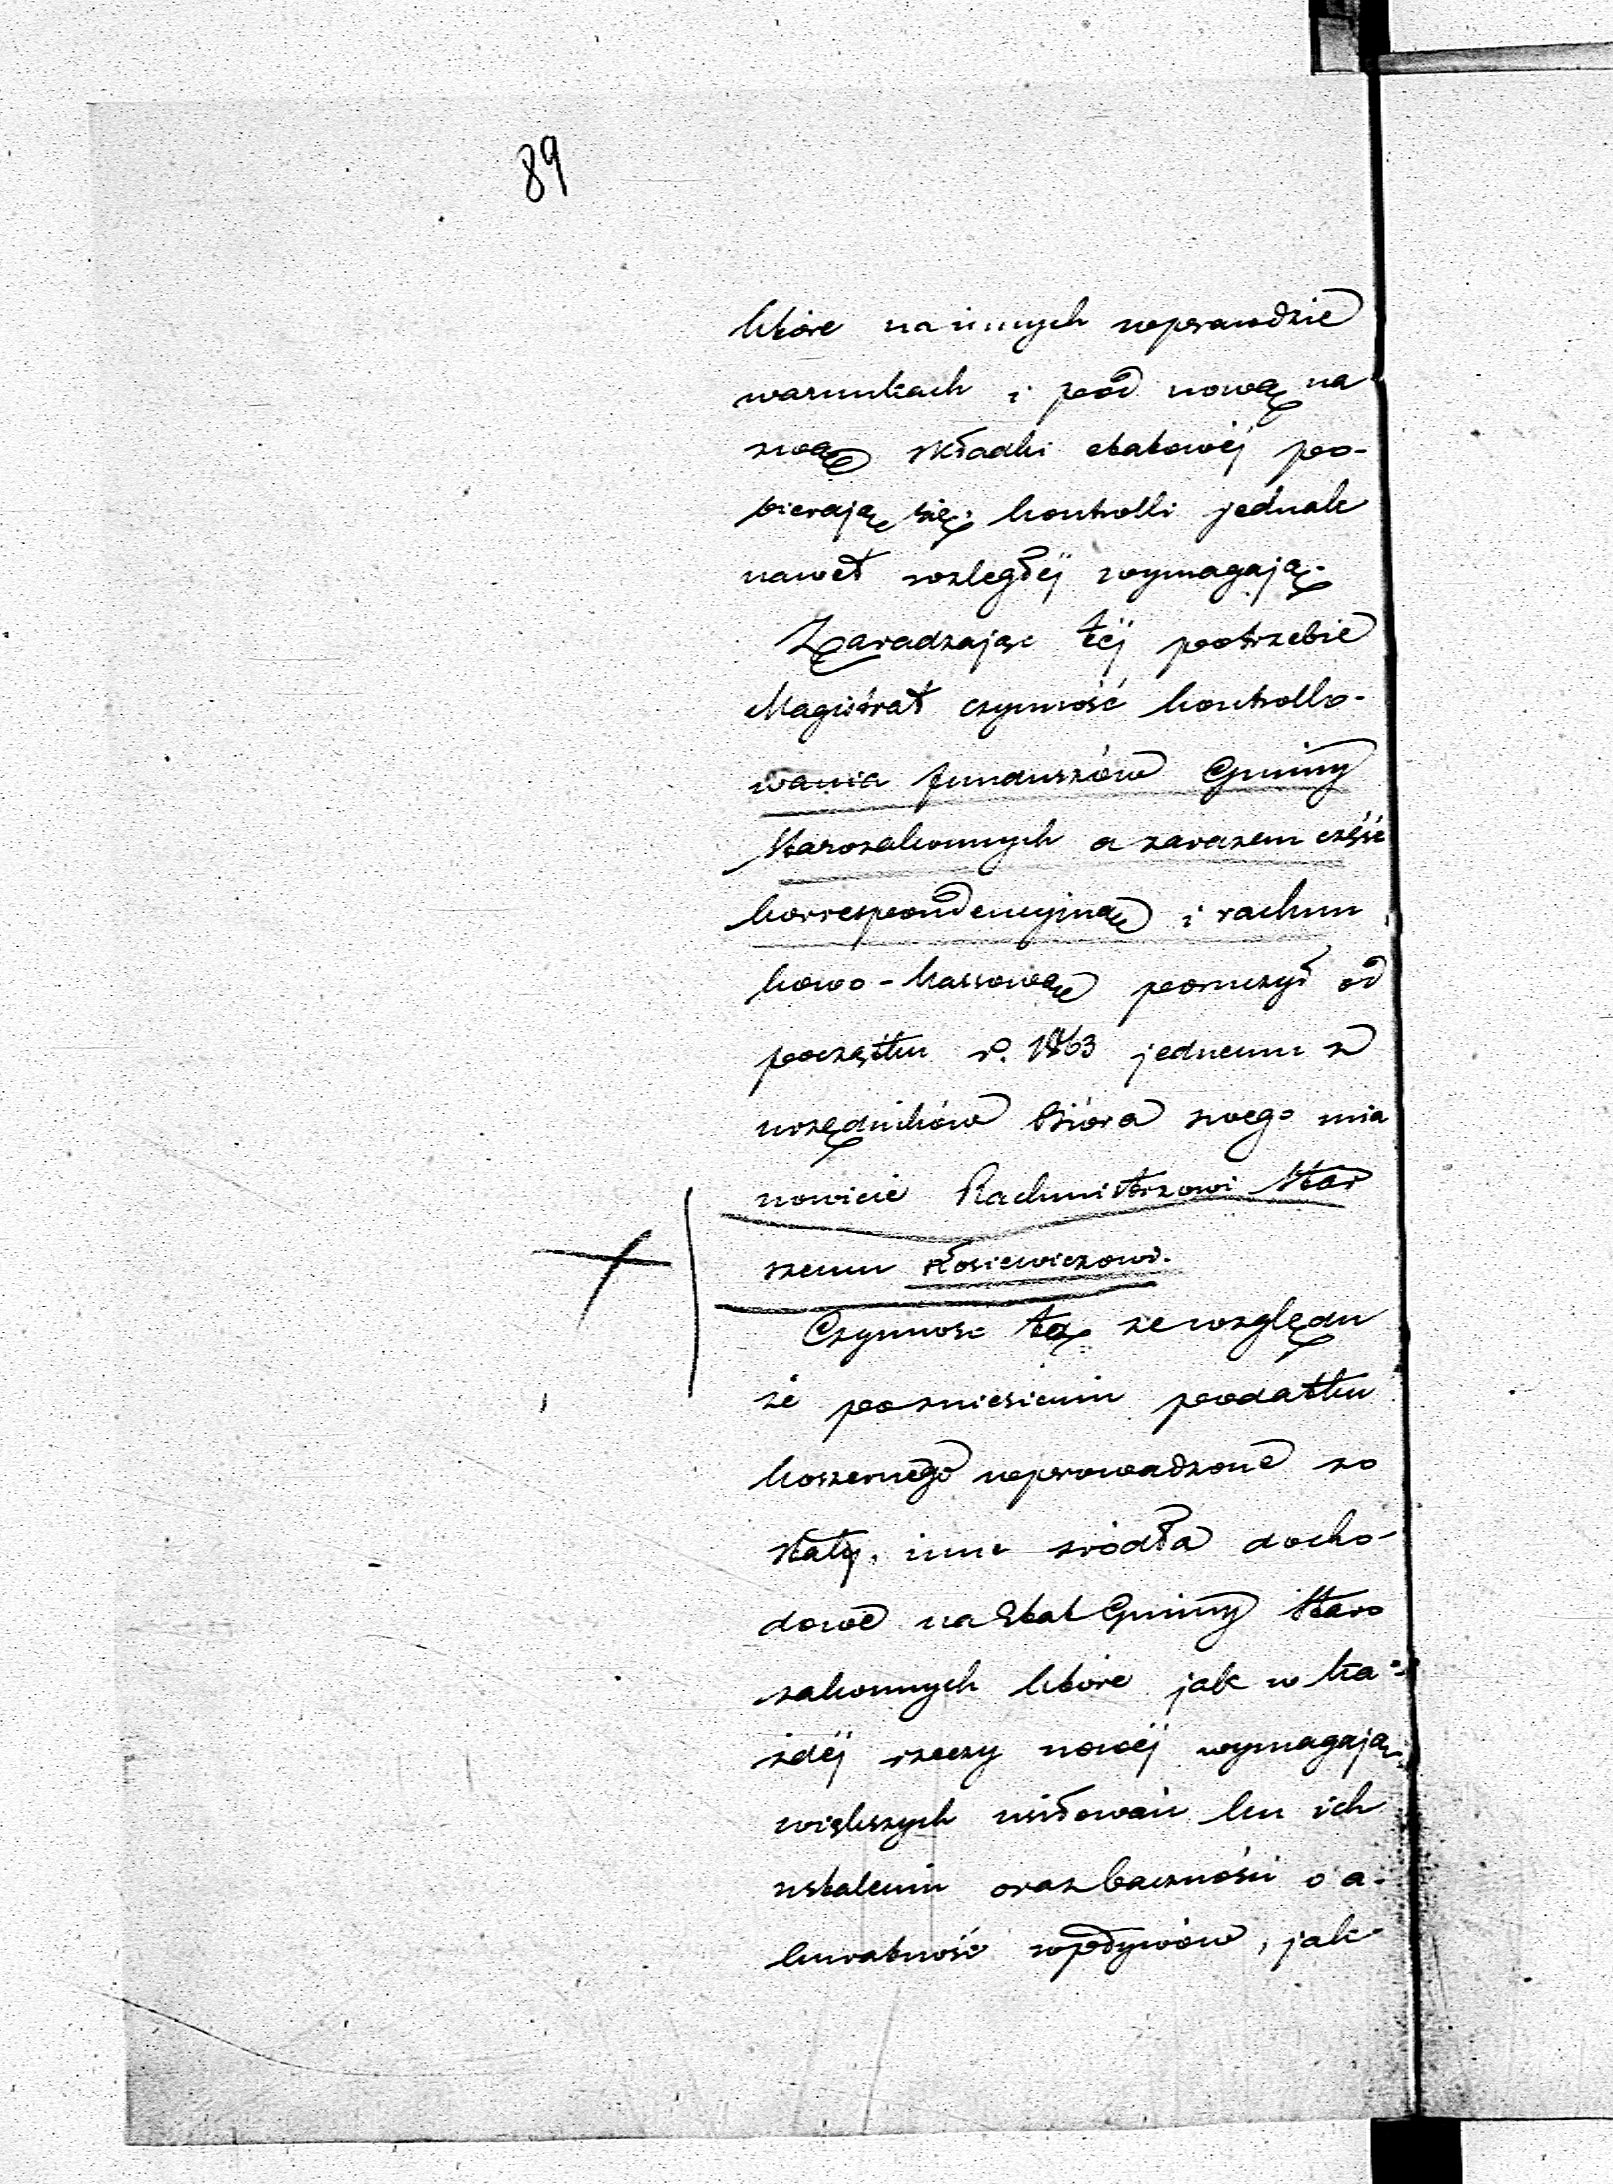 89
które na innych wprawdzie
warunkach i pod nową na
zwą składki etatowéj po-
bierają się, kontrolli jednak
nawet rozległéj wymagają.
Zaradzając téj potrzebie
Magistrat czynność kontrollo-
wania funduszów Gminy
Starozakonnych a zarazem część
korrespondencyjną i rachun
kowo-kassową poruczył od
początku r. 1863 jednemu z
urzędników Bióra swego mia
nowicie Rachmistrzowi Star
szemu Kosiewiczowi.
Czynność tą ze względu
że po zniesieniu podatku
koszernego wprowadzone zo
stały inne źródła docho-
dowe na Etat Gminy Staro
zakonnych które jak w ka-
żdéj rzeczy nowéj wymagają
większych usiłowań ku ich
ustaleniu oraz baczności o a-
kuratność wpływów, jak